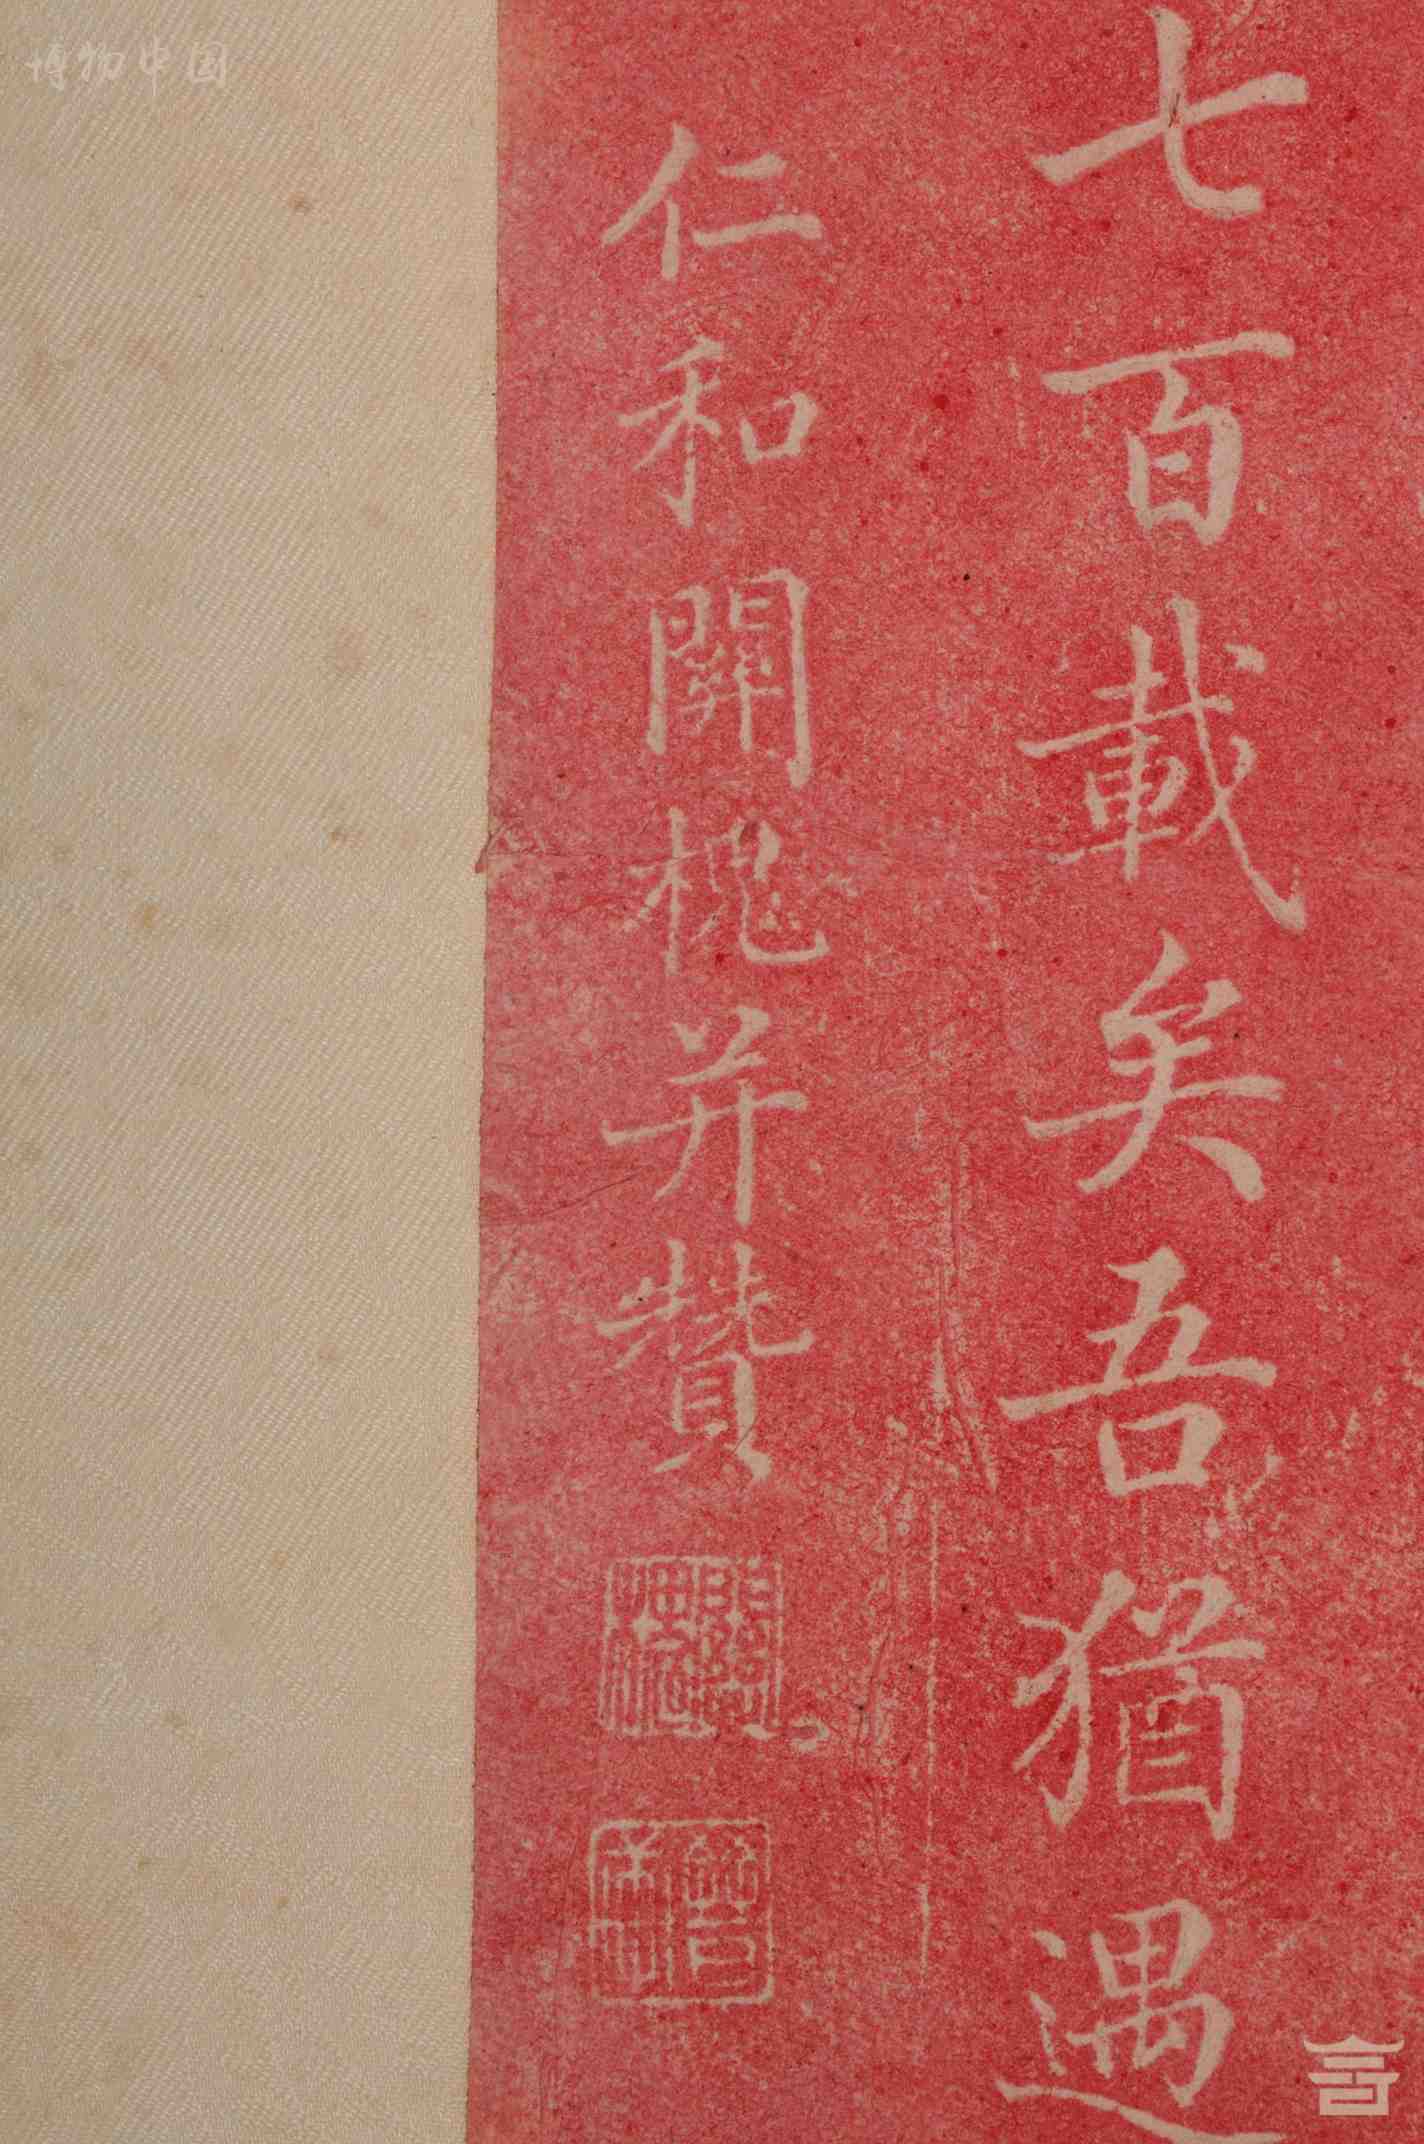 七百載矣吾猶遇
仁和關槐并贊
博物中国